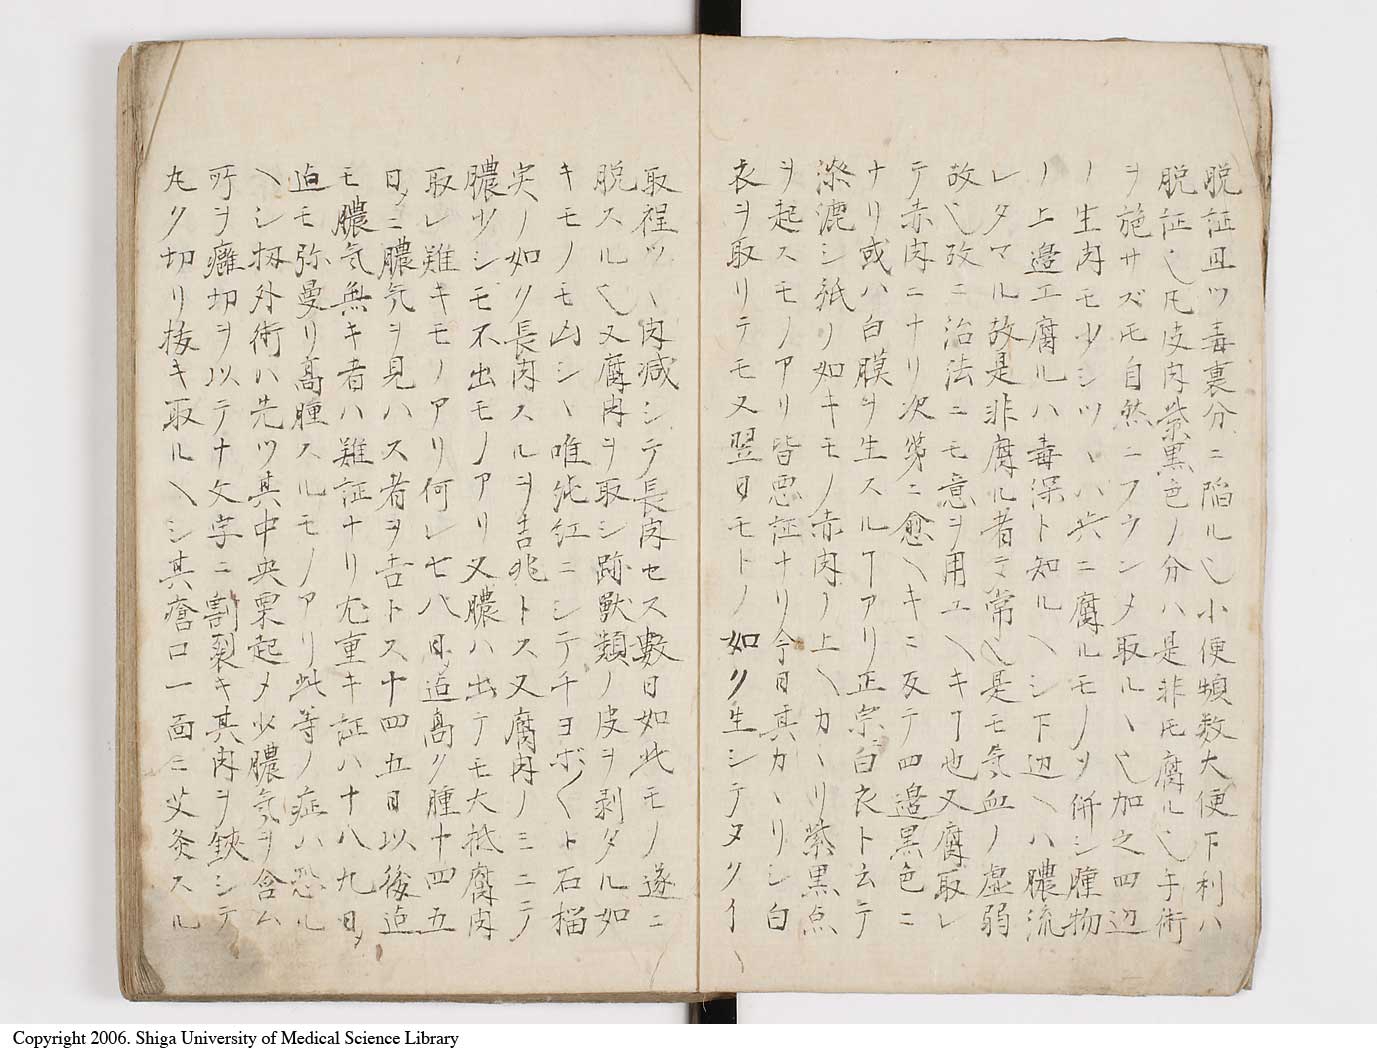 脱証且ツ毒裏分ニ陥ル也小便頻数大便下利ハ
脱証也𪜈皮肉紫黒色ノ分ハ是非𪜈腐ル也手術
ヲ施サズ𪜈自然ニフウンメ取ルヽ也加之四辺
ノ生肉モ少シツヽハ共ニ腐ルモノヲ併シ腫物
ノ上邉エ腐ルハ毒深ト知ルヘシ下辺ヘハ膿流
レタマル故是非腐ル者ニテ常也是モ気血ノ虚弱
故也故ニ治法ニモ意ヲ用エヘキヿ也又腐取レ
テ赤肉ニナリ次第ニ愈ヘキニ反テ四邉黒色ニ
ナリ或ハ白膜ヲ生スルヿアリ正宗白衣ト云テ
滲漉シ紙リ如キモノ赤肉ノ上ヘカヽリ紫黒点
ヲ起スモノアリ皆悪証ナリ今日其カヽリシ白
衣ヲ取リテモ又翌日モトノ如ク生シテヌクイ
取程ツヽ肉減シテ長肉セス數日如此モノ遂ニ
脱スル也又腐肉ヲ取シ跡獸類ノ皮ヲ剥タル如
キモノモ凶シヽ唯純紅ニシテチヨボ〱ト石榴
実ノ如ク長肉スルヲ吉兆トス又腐肉ノミニテ
膿少シモ不出モノアリ又膿ハ出テモ大抵腐肉
取レ難キモノアリ何レ七八日追高ク腫十四五
日メニ膿気ヲ見ハス者ヲ吉トス十四五日以後迫
モ膿気無キ者ハ難証ナリ尤重キ証ハ十八九日メ
迫モ弥曼リ高腫スルモノアリ此等ノ症ハ恐ル
ヘシ扨外術ハ先ツ其中央粟起メ少膿気ヲ含ム
所ヲ癰切ヲ以テ十文字ニ割裂キ其肉ヲ鋏シテ
丸ク切リ抜キ取ルヘシ其瘡口一面ニ艾灸スル
Copyright 2006. Shiga University of Medical Science Library